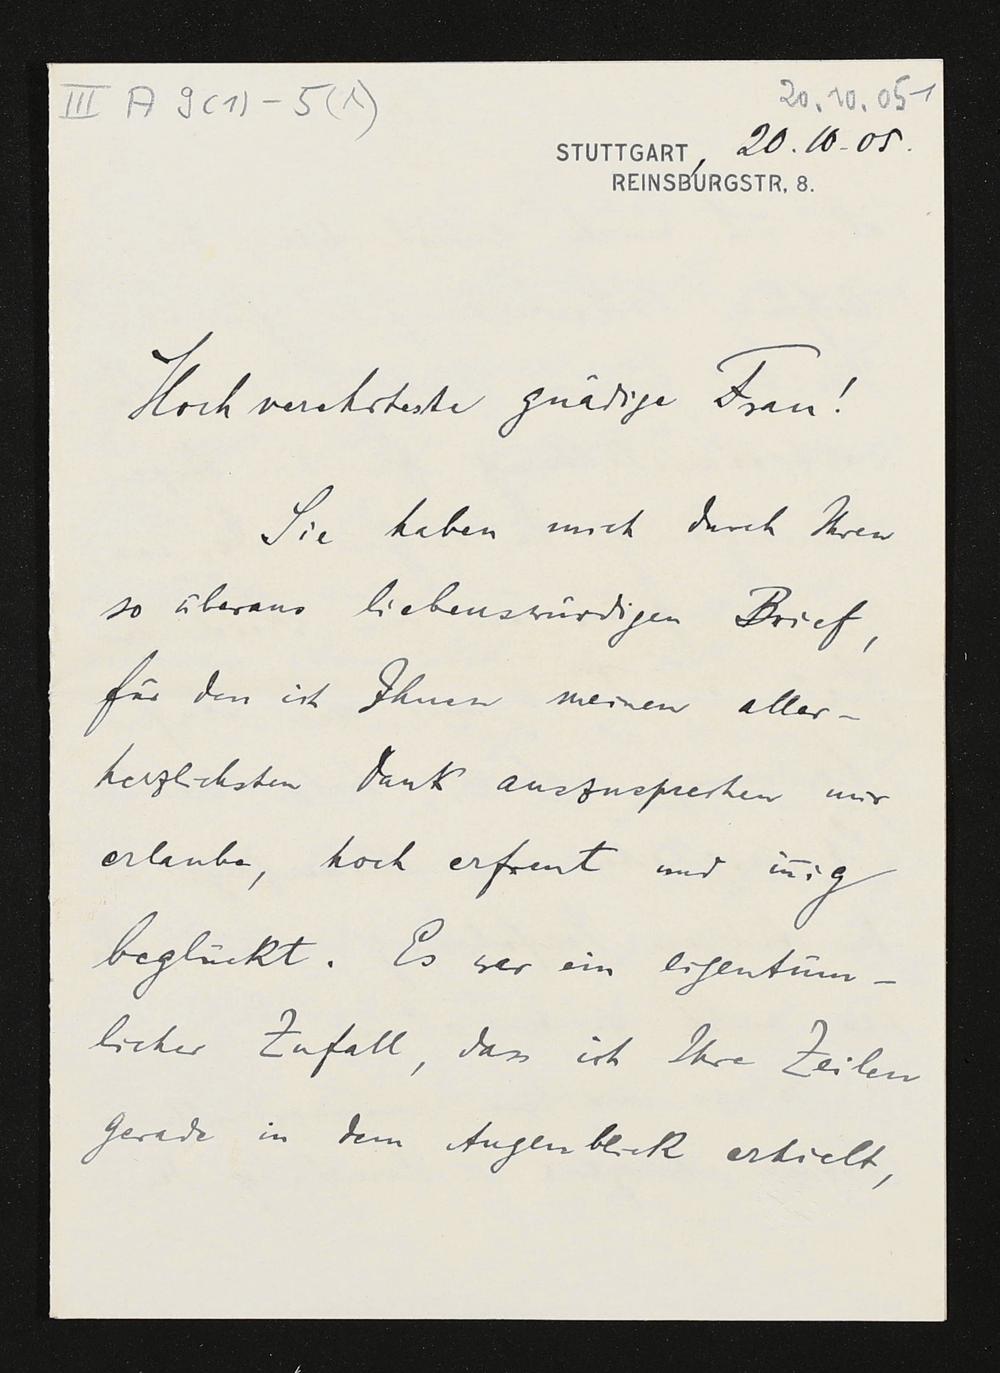 III A 9(1) - 5(1)
20.10.05-1
STUTTGART, 20.10-05.
REINSBURGSTR. 8.
Hochverehrteste gnädige Frau!
Sie haben mich durch Ihren
so überaus liebenswürdigen Brief,
für den ich Ihnen meinen aller-
herzlichsten Dank auszusprechen mir
erlaube, hoch erfreut und iñig
beglückt. Es war ein eigentüm-
licher Zufall, dass ich Ihre Zeilen
gerade in dem Augenblick erhielt,